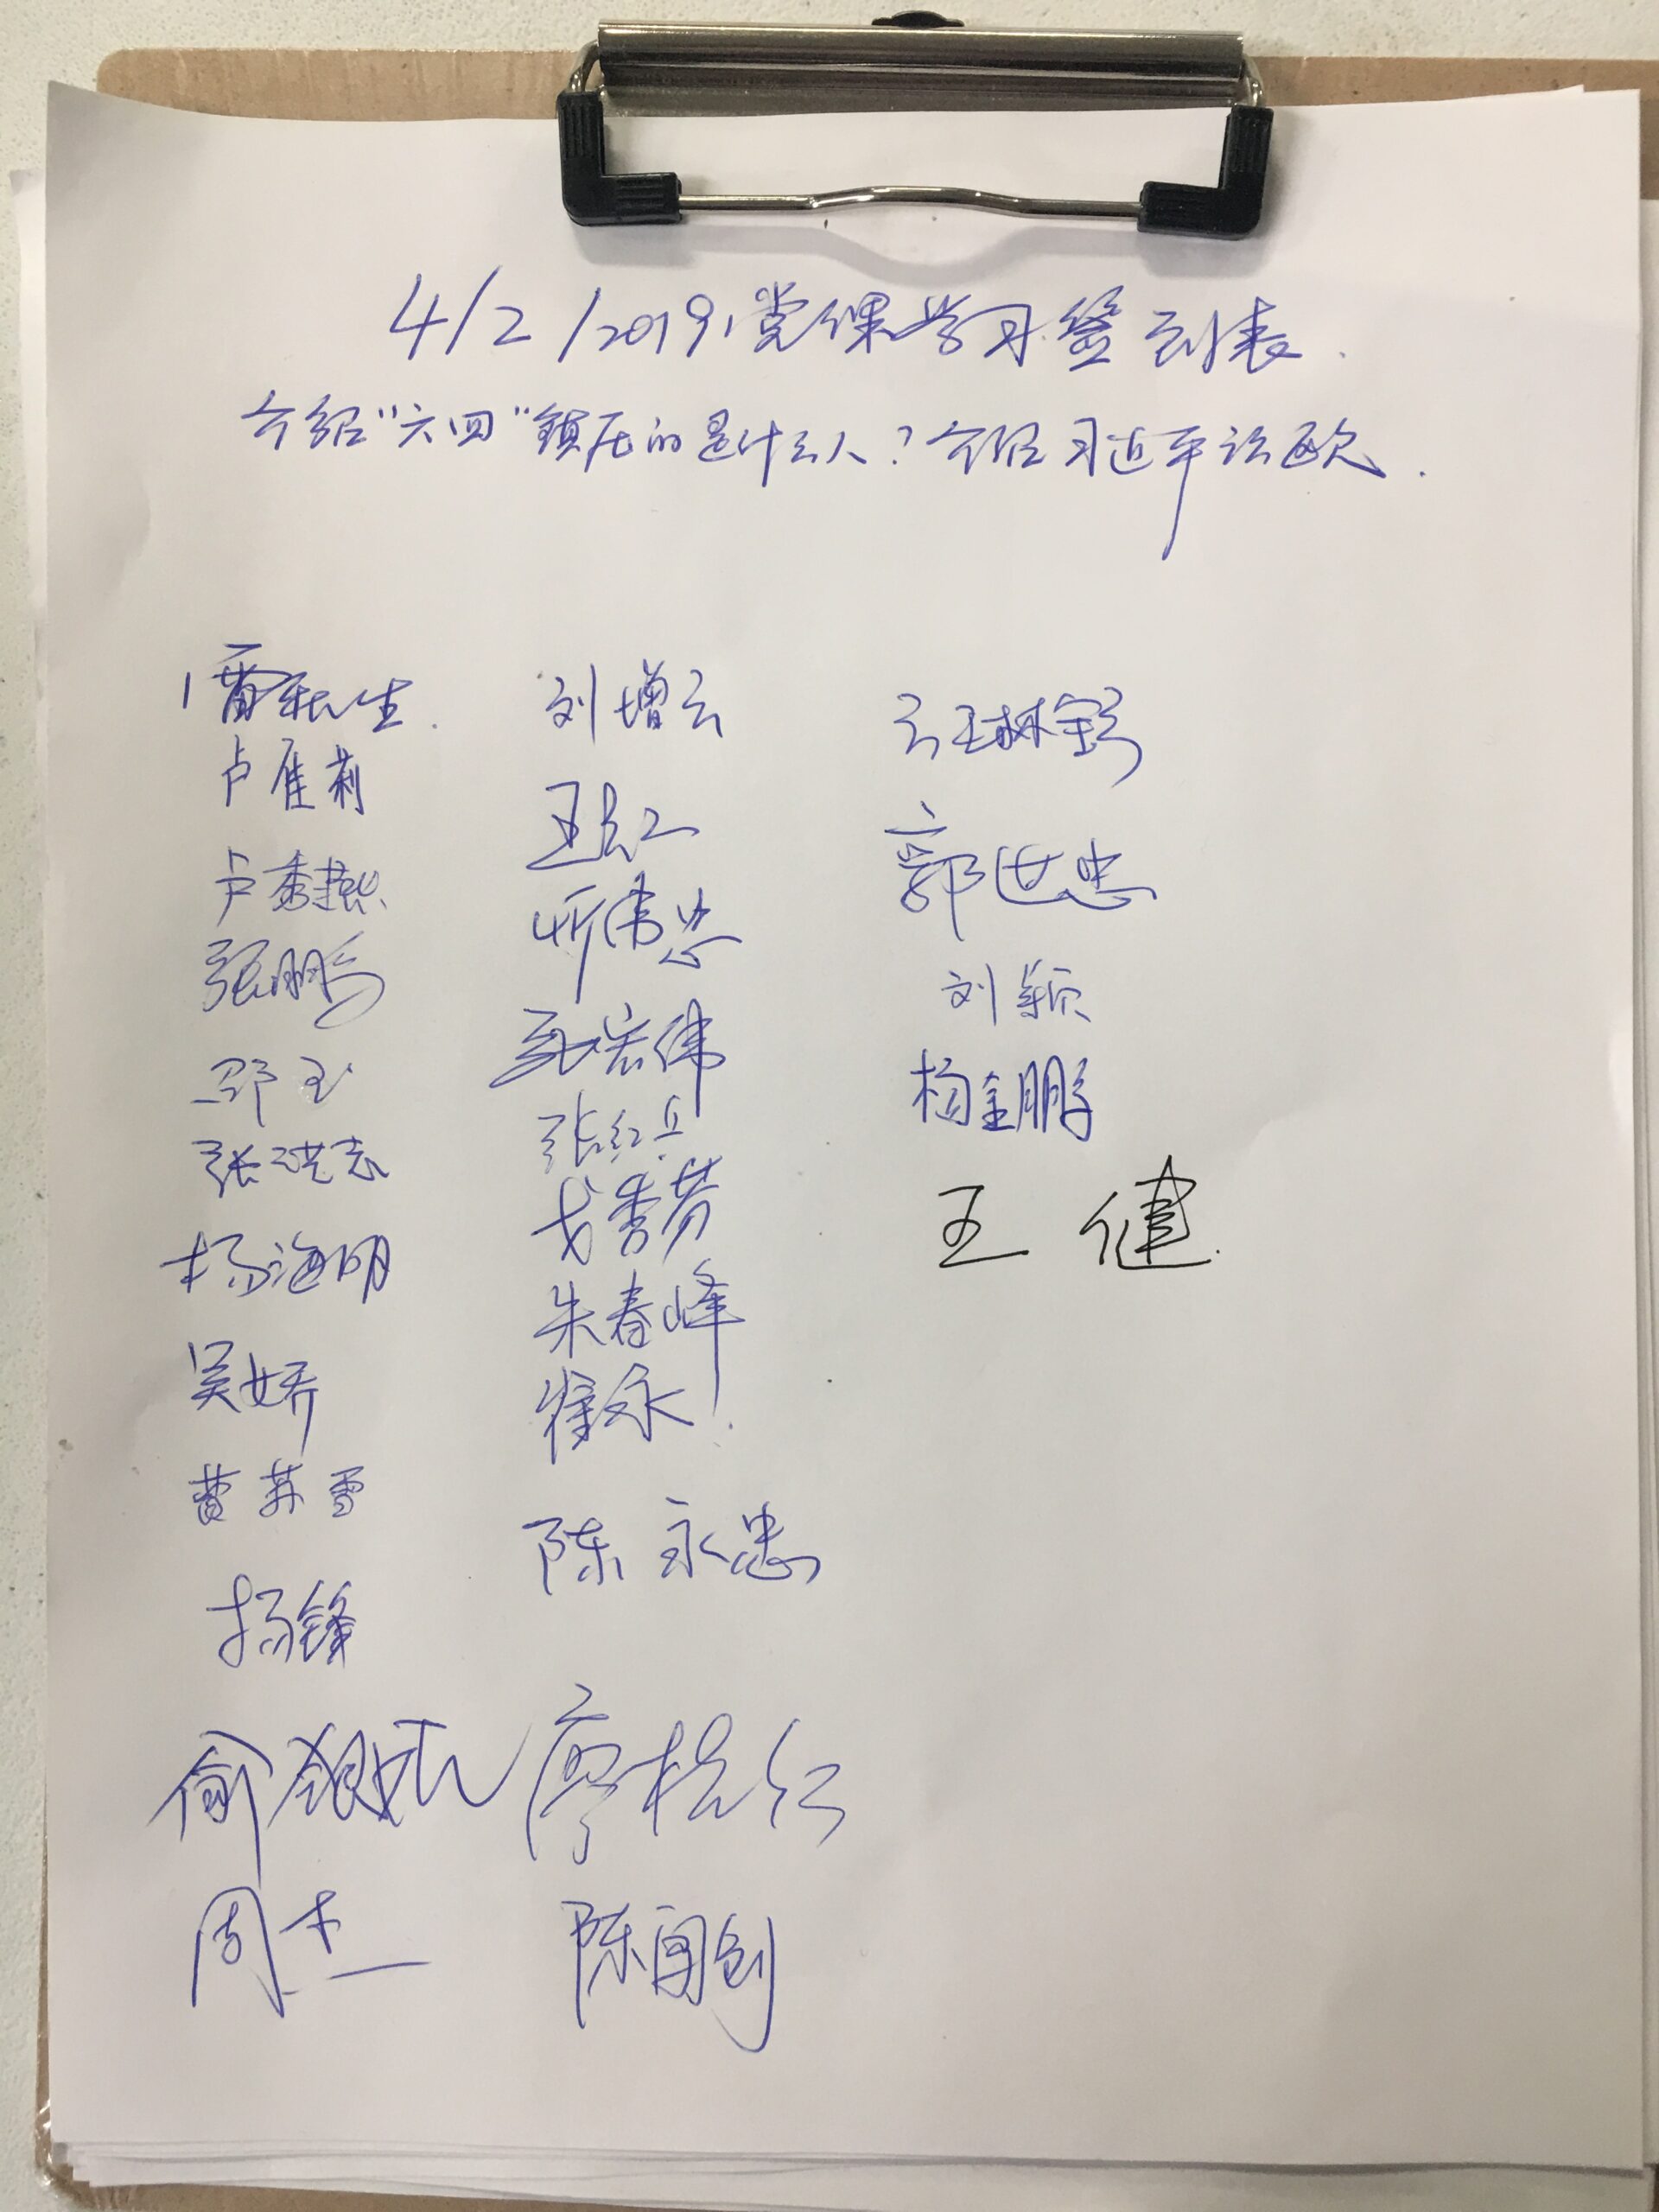 4/2/2019,党课学习签到表.
介绍"六四"镇压的是什么人?介绍习近平访欧.
卢雁莉
卢秀燕
张鹏
邵玉
张洪志
杨海明
吴娇
黄苏雪
杨锋
俞银
周杰
刘增云
王红
靳伟忠
宏伟
张红兵
戈秀芳
朱春峰
徐永.
陈永忠
廖桂红
陈闯创
郭世忠
刘颖
杨金鹏
王健